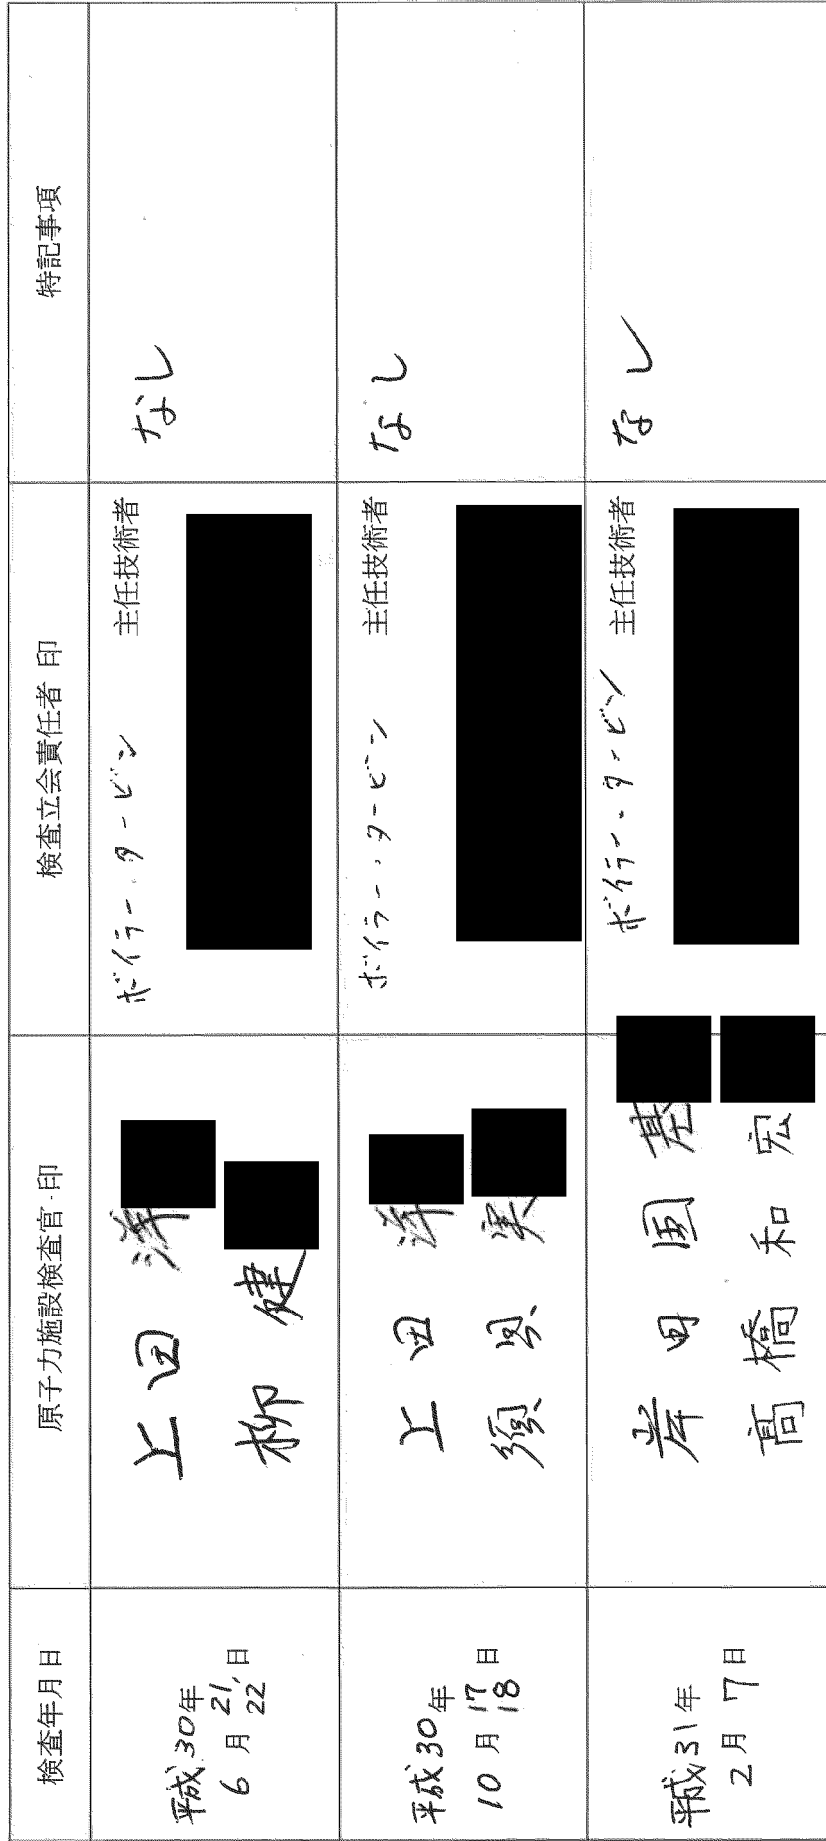 検査年月日
原子力施設検査官 印
検査立会責任者 印
特記事項
平成30年
6月21,22日
上田 洋
柳 健
ボイラー・タービン 主任技術者
なし
平成30年
10月17 18日
上田 洋
須貝 実
ボイラー・タービン 主任技術者
なし
平成31年
2月7日
岸田 国基
高橋 和宏
ボイラー・タービン 主任技術者
なし